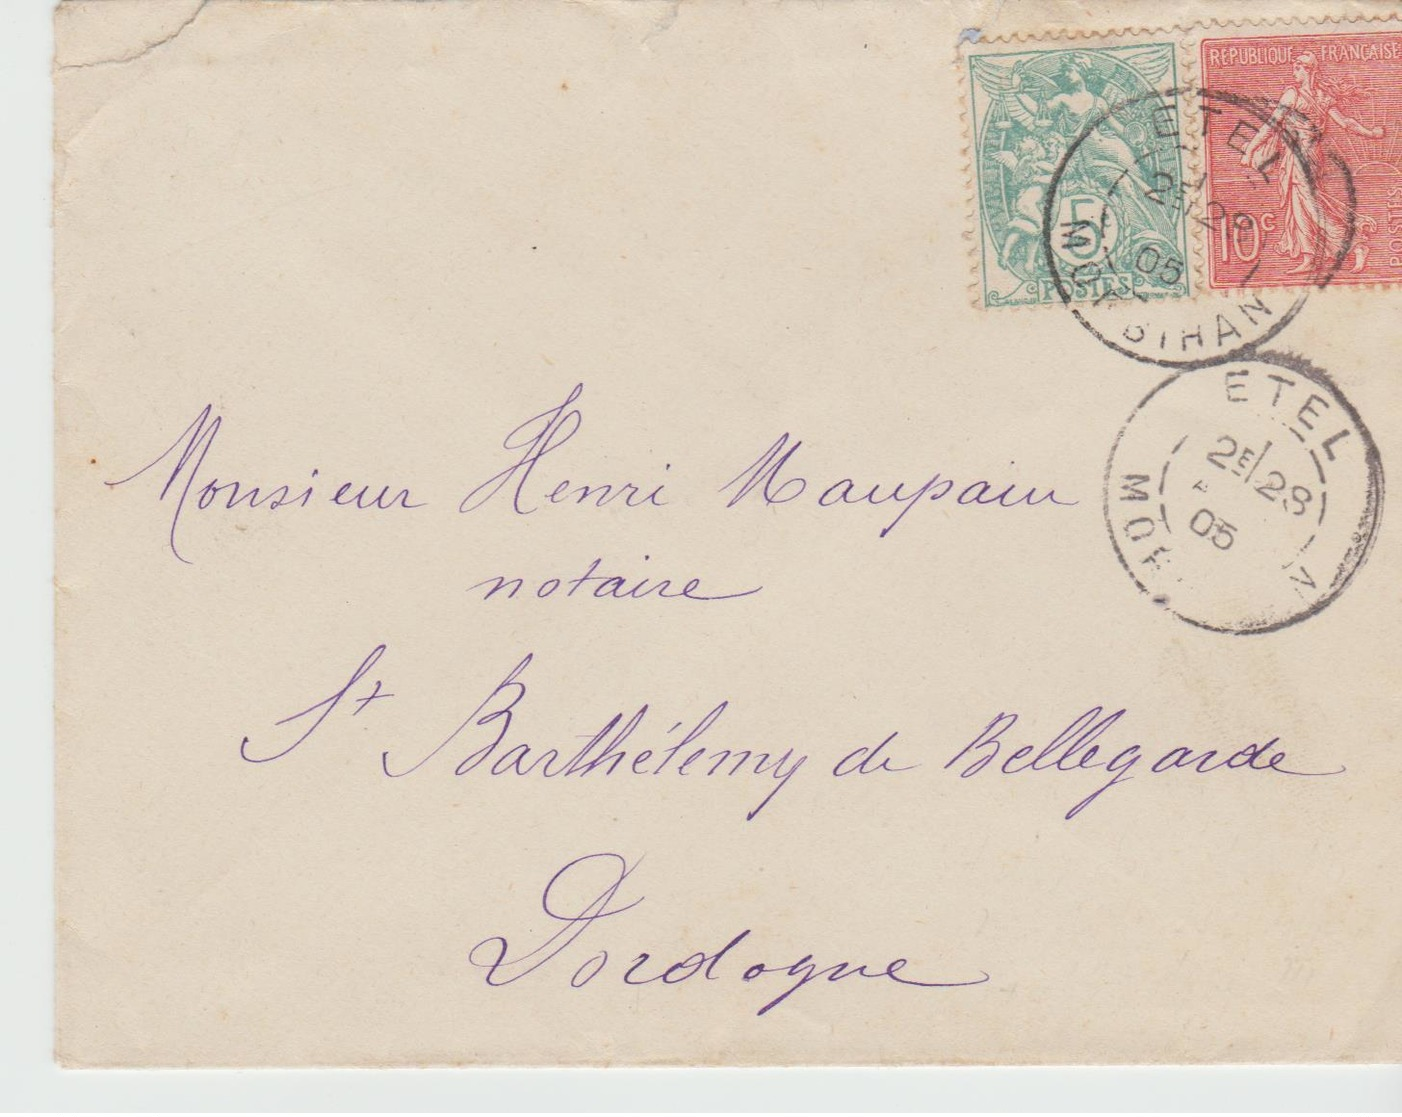 REPUBLIQUE FRANÇAISE
10c
POSTES
5
POSTES
ETEL
28
05
MORBIHAN
ETEL
2E 28
05
MOR N
Monsieur Henri Maupain
notaire
St Barthélemy de Bellegarde
Dordogne